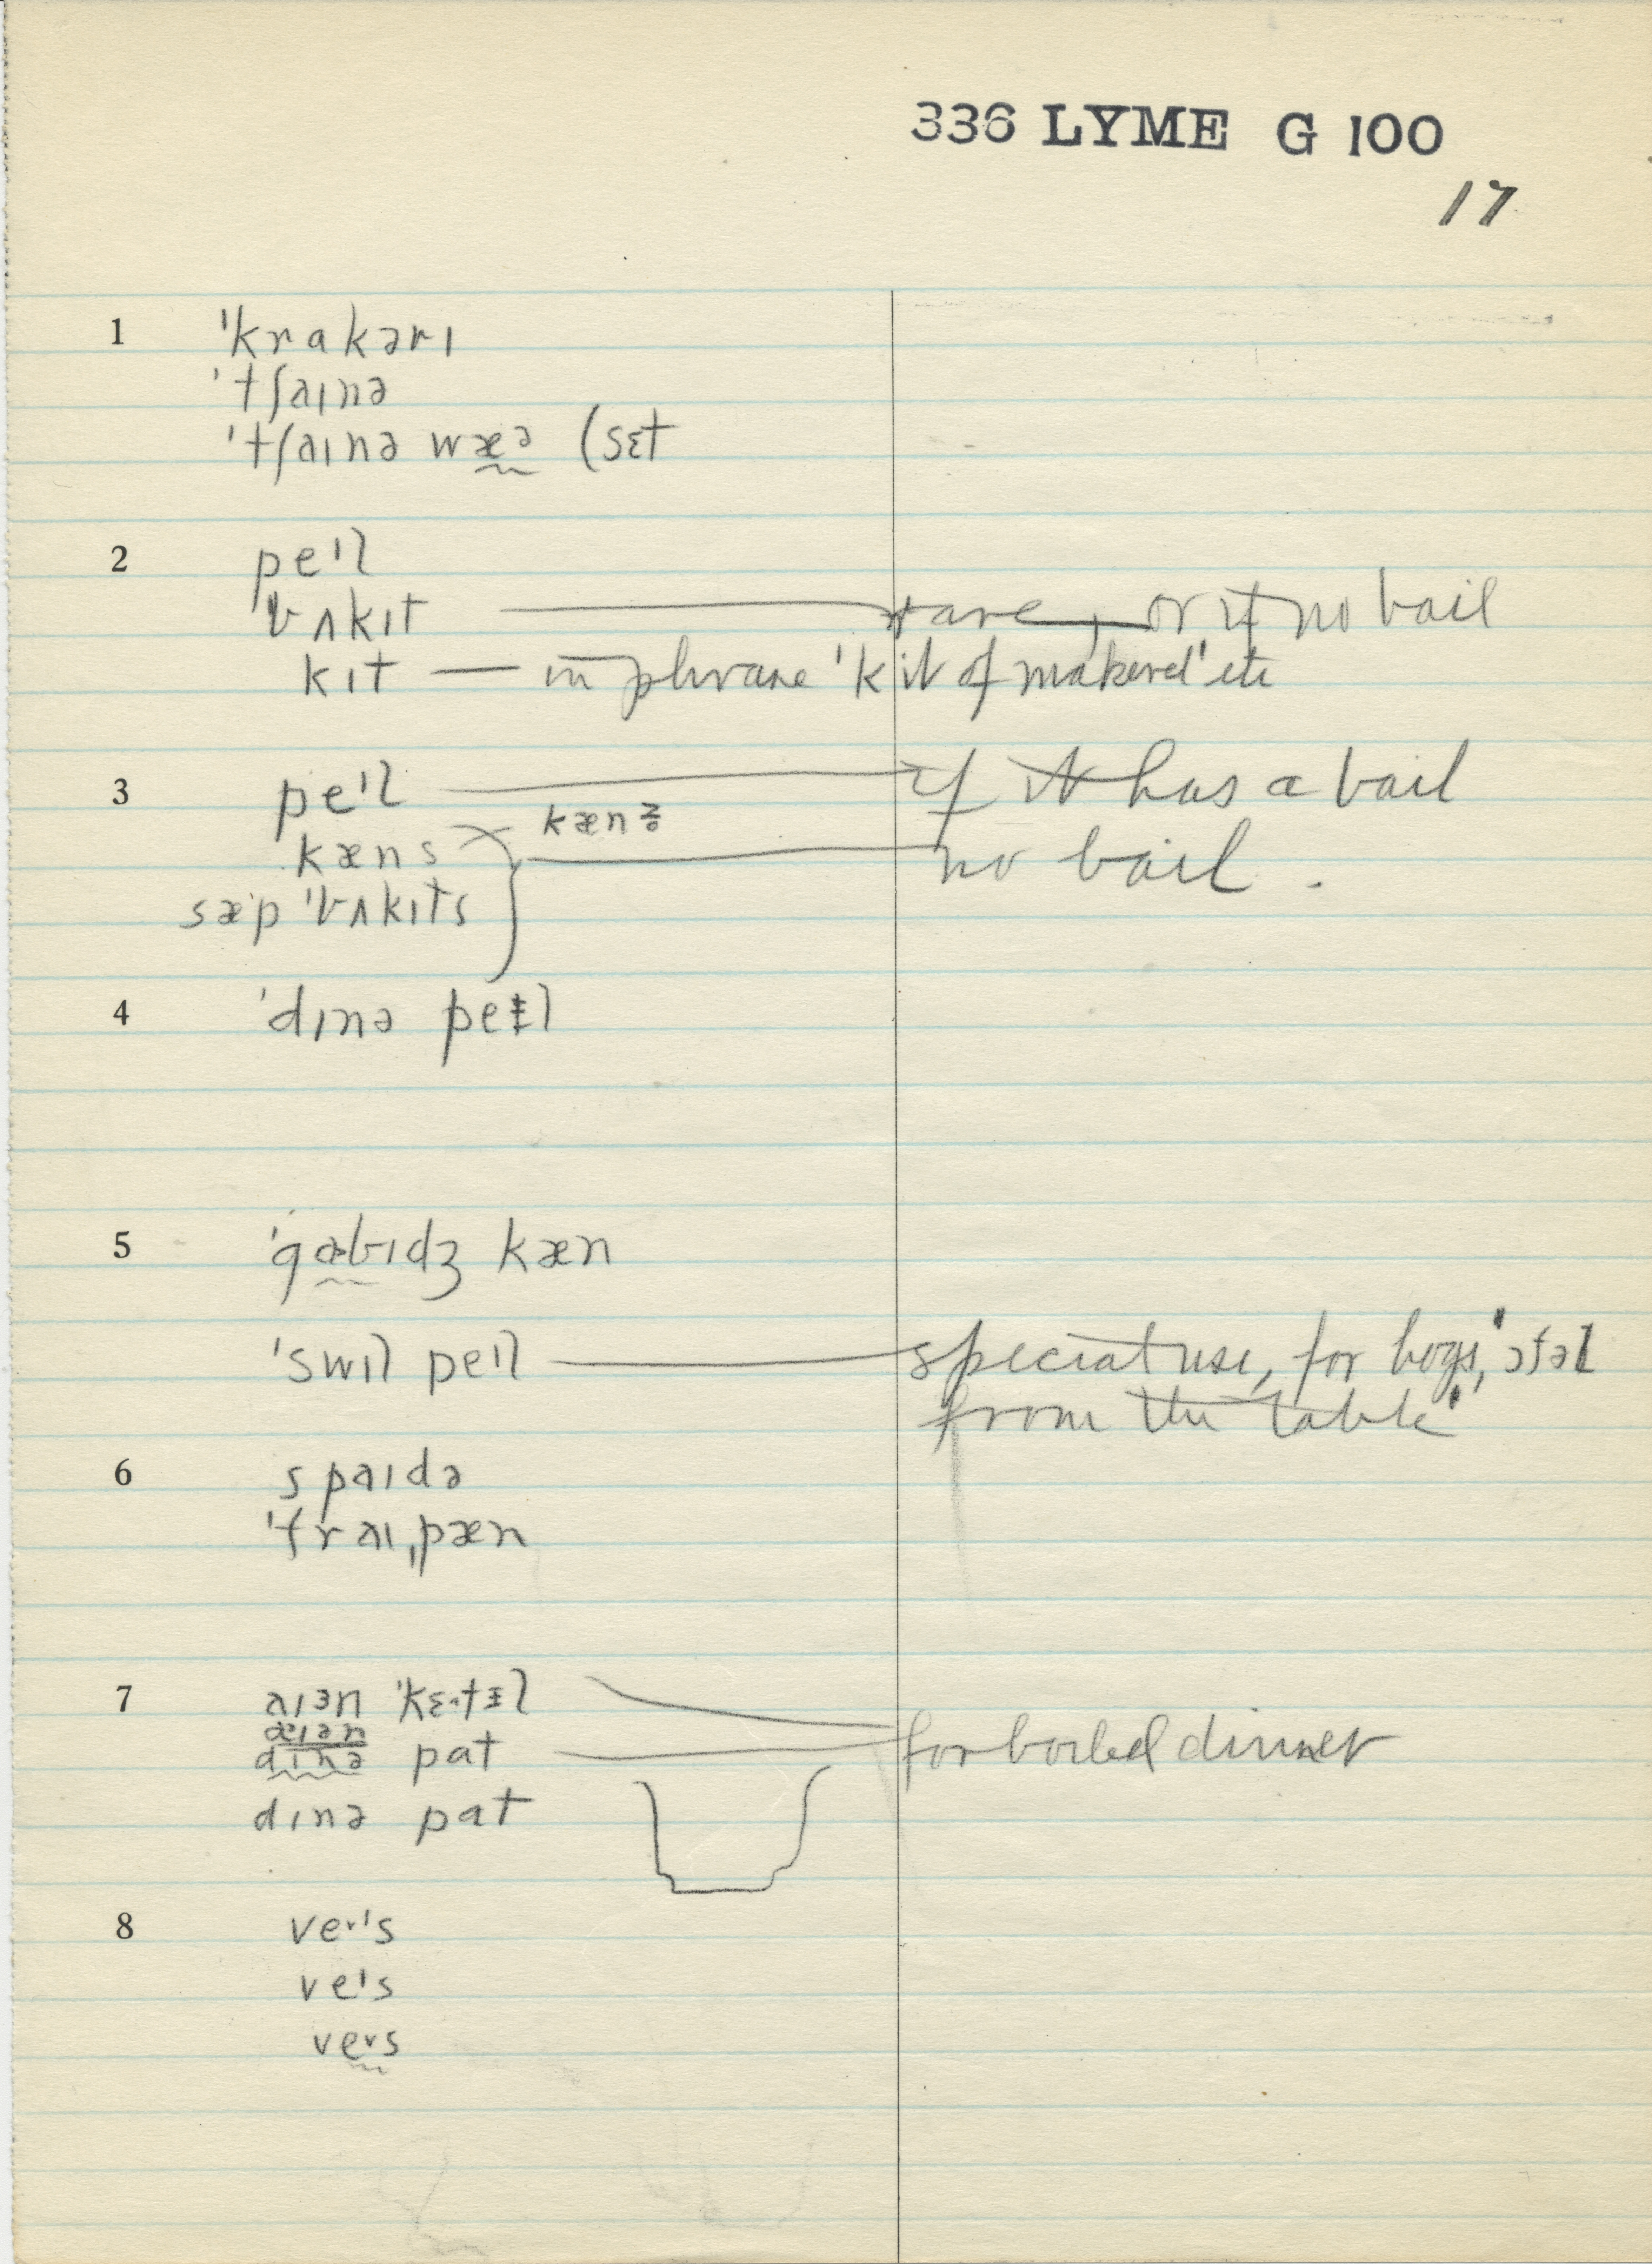 336 LYME G 100
17
1 ˈkrakərı
ˈtʃaınə
ˈtʃaınə wæə (sɛt
2 peıl
ˈbʌkıt — rare, or if no bail
kıt — in phrase 'kit of makerel' etc
3 peıl — if it has a bail
kænz̥
kæns — no bail.
sæp ˈbʌkıts
4 ˈdınə peɨl
5 ˈgabıdʒ kæn
ˈswıl peıl — special use, for hogs, "ɔfəl
from the table"
6 spaıdə
ˈfraıˌpæn
7 aıɜn ˈkɛtɨl
aıən
dınə pat — for boiled dinner
dınə pat
8 veˑıs
veıs
vevs